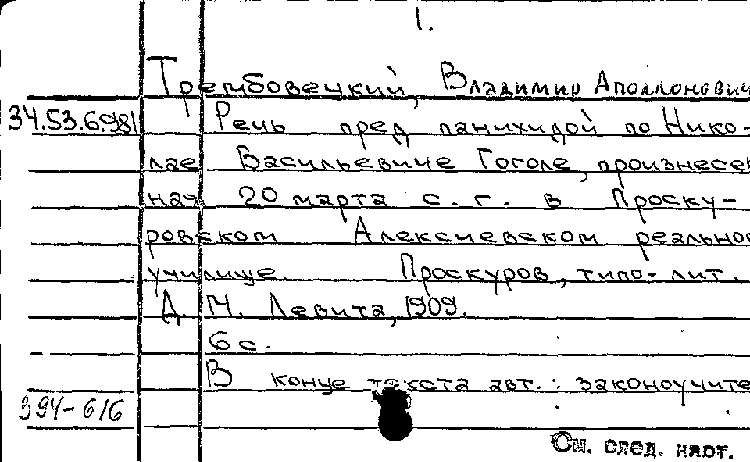 1.
Трембовецкий, Владимир Аполлонович
34.53.6.981 Речь пред панихидой по Нико-
лае Васильевиче Гоголе, произнесен
ная 20 марта с. г. в Проску-
ровском Алексеевском реально
училище. Проскуров, типо-лит.
Д. М. Левита, 1909.
6 с.
В конце текста авт.: законоучите
394-616
См. след. карт.